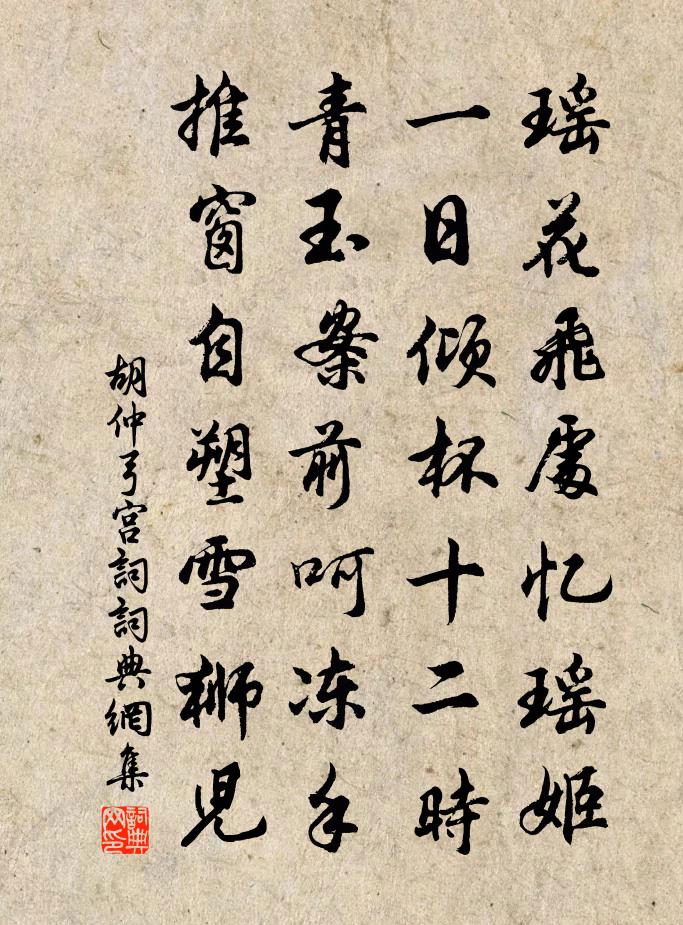 瑶花飛處忆瑶姬
一日倾杯十二時
青玉案前呵冻手
推窗自塑雪狮児
胡仲弓宫詞詞典網集
詞典网印